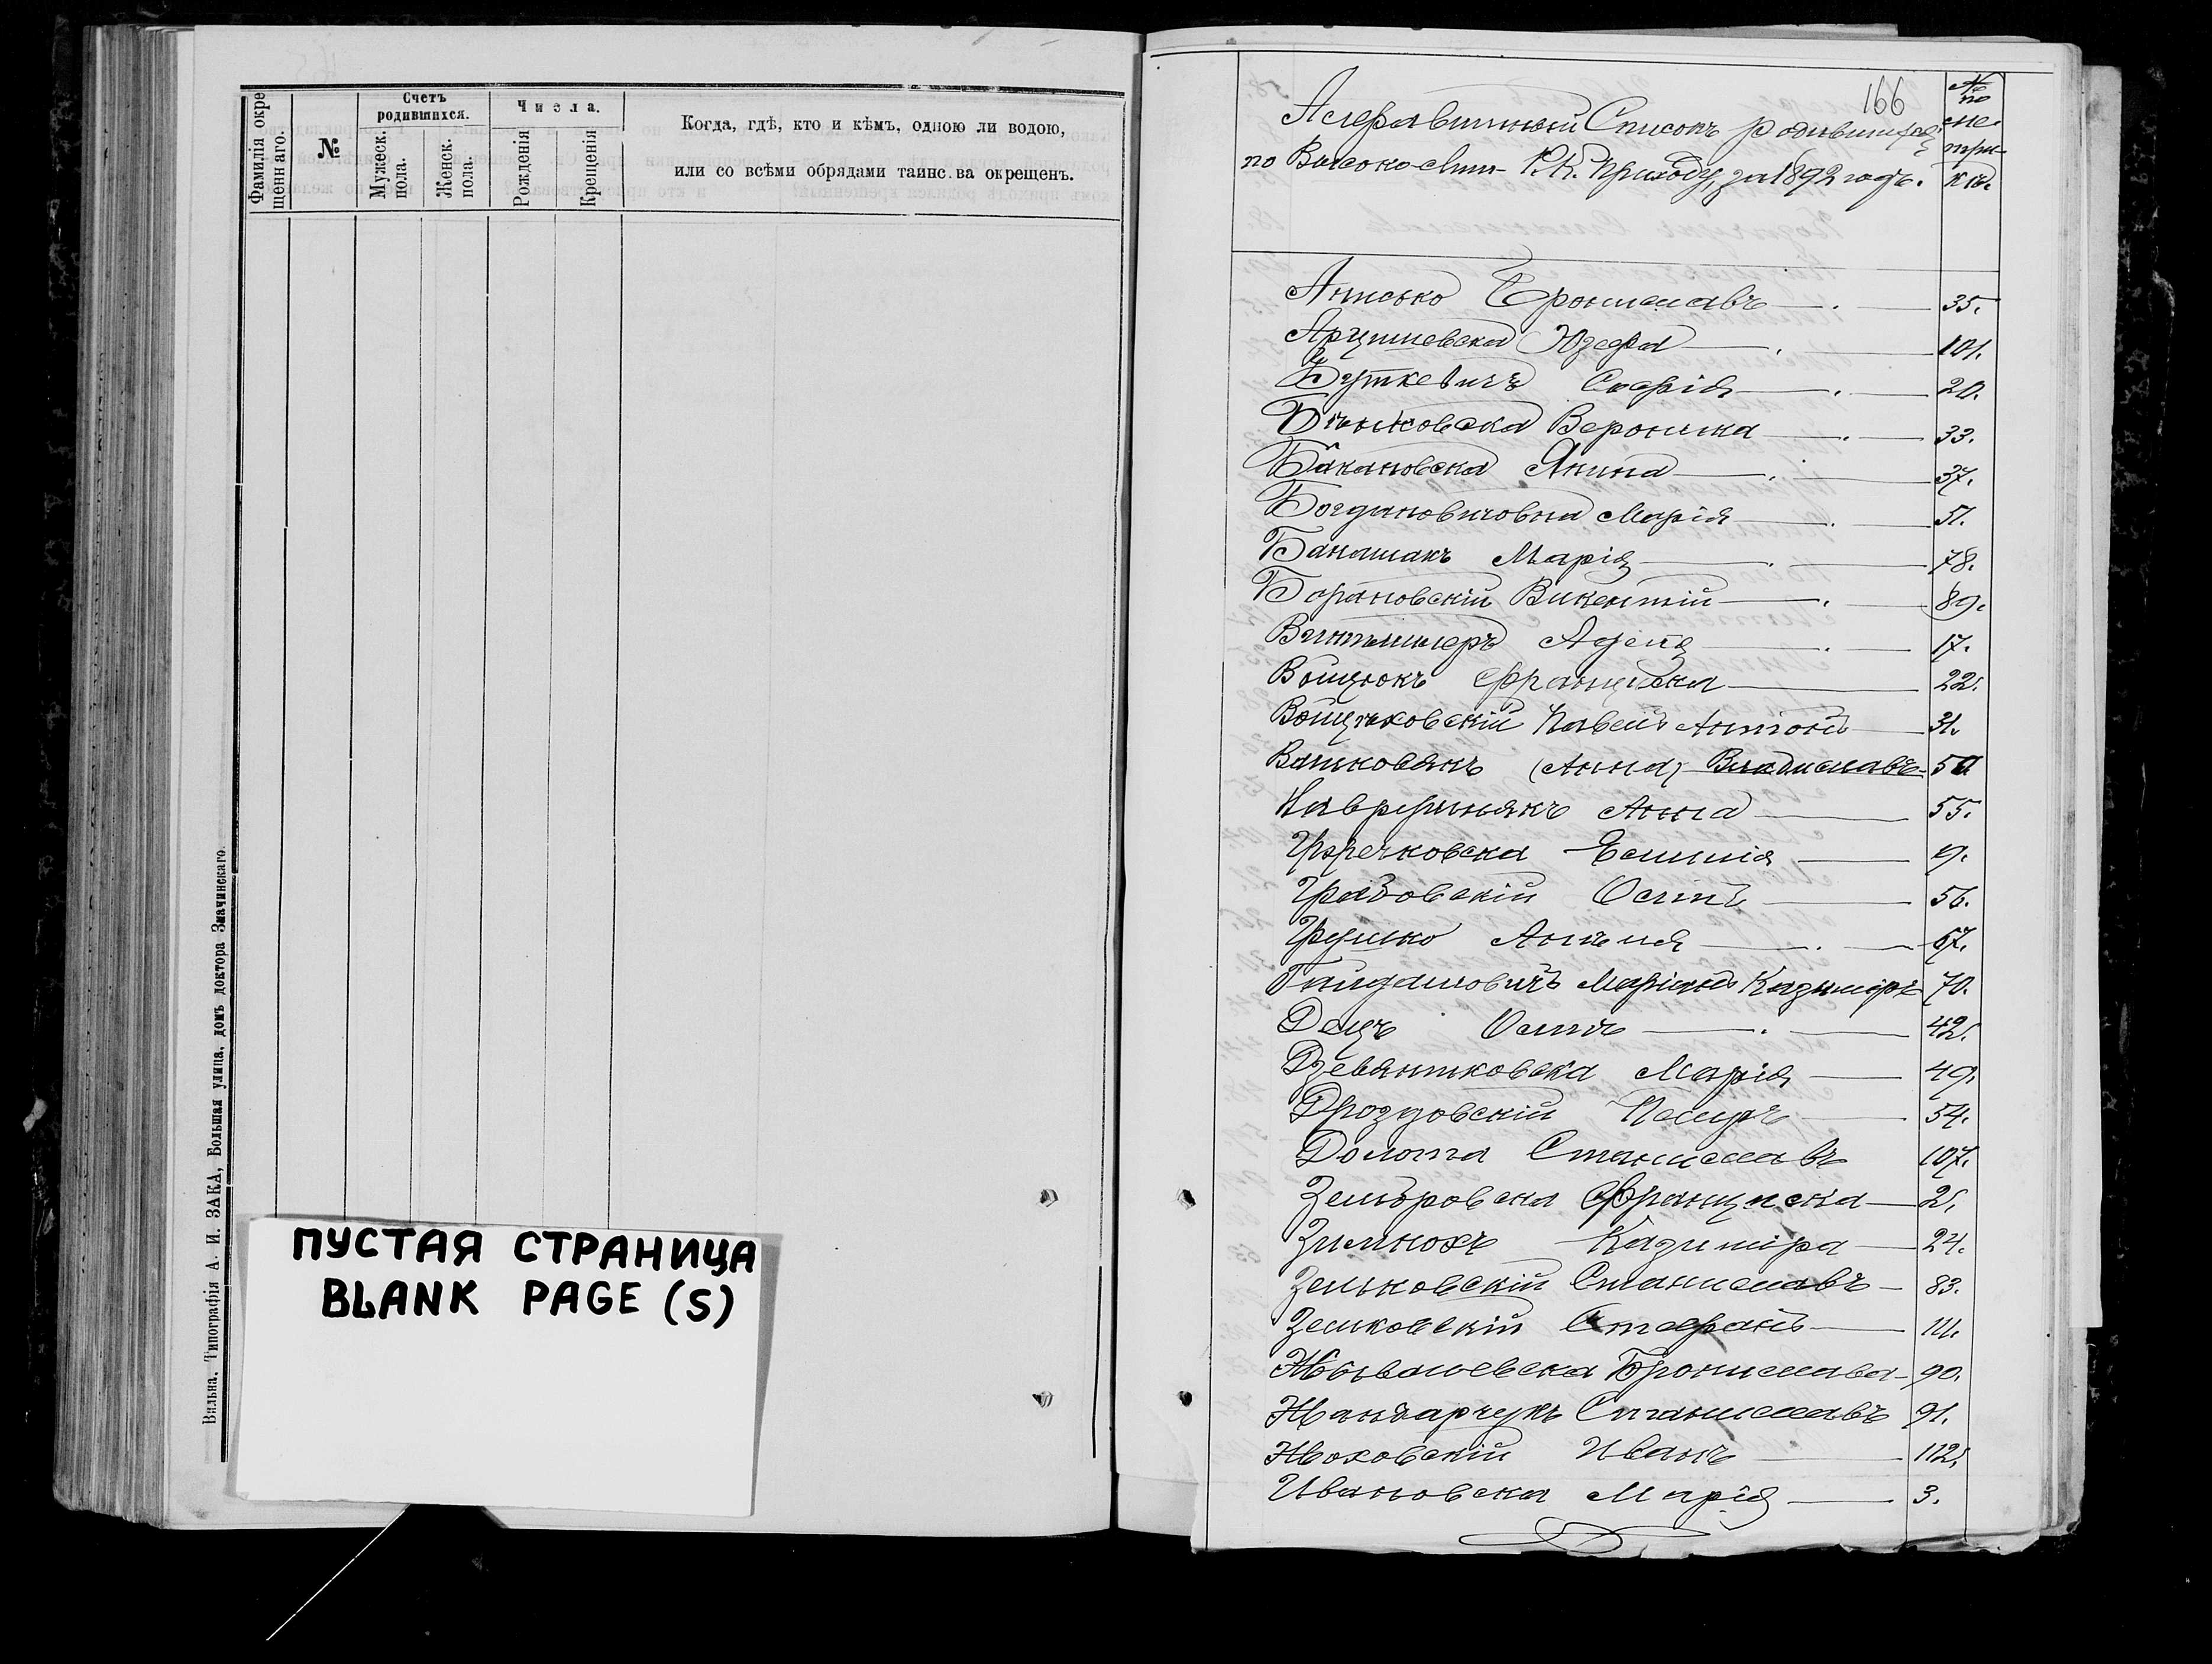 Фамилія окре
щеннаго.
№
Счетъ
родившихся.
Мужеск.
пола.
Женск.
пола.
Числа.
Рожденія
Крещенія
Когда, гдѣ, кто и кѣмъ, одною ли водою,
или со всѣми обрядами таинства окрещенъ.
Вильна. Типографія А. И. ЗАКА, Большая улица, домъ доктора Змачинскаго.
ПУСТАЯ СТРАНИЦА
BLANK PAGE (S)
166
Алфавитный Списокъ родившихся
по Высоко-Лит- Р.К. Приходу, за 1892 годъ.
№
по
ме-
три-
кѣ.
Анисько Брониславъ 35.
Арцишевска Юзефа 101.
Буткевичъ Софія 20.
Бѣньковска Вероника 33.
Бакановска Янина 37.
Богдановичовна Марія 51.
Банашакъ Марія 78.
Барановскій Викентій 89.
Адель 17.
Войцюкъ Франциска 22.
Войцѣховскій Павелъ Антоній 31.
Вашковякъ (Анна) Владиславъ 50
Анна 55.
Емилія 9.
Грабовскій Осипъ 56.
Грушко Анѣля 67.
Гайдамовичъ Маріанъ Казиміръ 70.
Децъ Осипъ 42.
Дзевянтковска Марія 49.
Дроздовскій Петръ 54.
Долота Станиславъ 107.
Зембровска Франциска 2.
Зимнохъ Казиміра 24.
Зеньковскій Станиславъ 83.
Земковскій Стефанъ 111.
Жывалевска Бронислава 90.
Жандарчукъ Станиславъ 91.
Жоховскій Иванъ 112.
Ивановска Марія 3.